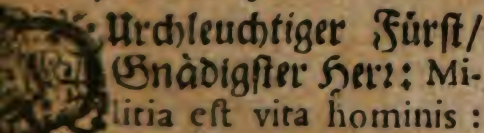 Urchleuchtiger Fürst/
Gnädigster Herr: Mi-
litia est vita hominis :